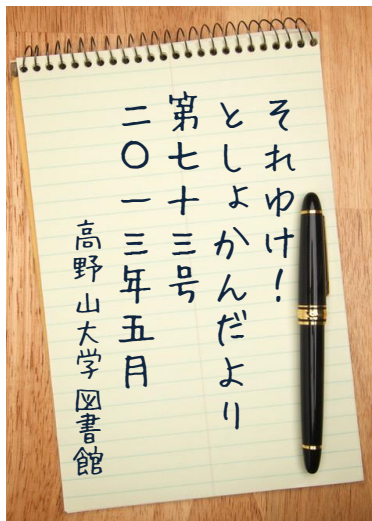 それゆけ！
としょかんだより
第七十三号
二〇一三年五月
高野山大学図書館